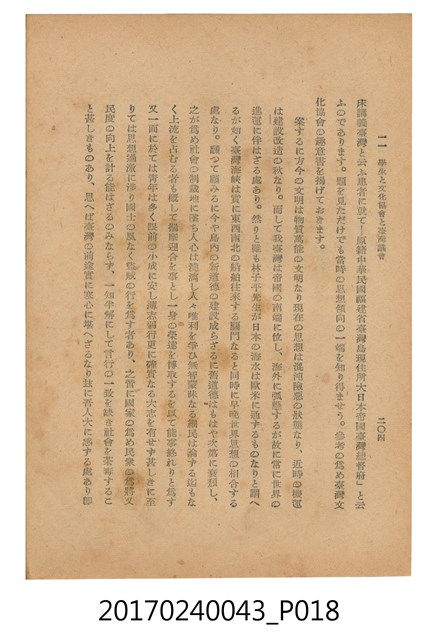 一一 學生と文化協會と臺灣議會 二〇四
床講義臺灣と云ふ患者に就て―原籍中華民國福建省臺灣島現住所大日本帝國臺灣總督府」と云
ふのであります。題を見ただけでも當時の思想傾向の一端を知り得ませう。參考の爲め臺灣文
化協會の趣意書を掲げておきます。
案するに方今の文明は物質萬能の文明なり現在の思想は混沌險惡の狀態なり、近時の機運
は建設改造の秋なり。而して我臺灣は帝國の南端に位し、海外に孤懸するが故に常に世界の
進運に伴はざる處あり。然りと雖も林子平先生が日本の海水は歐米に通するものなりと謂へ
るが如く臺灣海峽は實に東西南北の船舶往來する關門なると同時に早晩世界思想の相合する
處なり。飜つて顧みるに今や島內の新道德の建設成らざるに舊道德はもはや次第に衰頽し、
之が爲め社會の制裁地に墮ち人心は澆漓し人々唯利を爭ひ無智蒙昧なる細民は論する迄もな
く上流を占むる者も概して揣摩迎合を事とし一身の榮達を博取するを以て能事終れりと爲す
又一面に於ては靑年は多く眼前の小成に安し薄志弱行更に確實なる大志を有せず甚しきに至
りては思想過激に渉り國士の風なく
民度の向上を計る能はざるのみならず、一知半解にして言行の一致を缺き社會を茶毒するこ
と甚しきものあり、思へば臺灣の前途實に寒心に堪へざるなり玆に吾人大に感する處あり卽
20170240043_P018